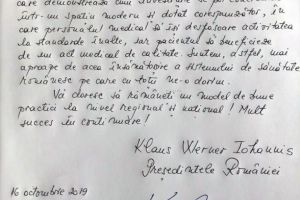 care demonstrează cum
într-un spațiu modern și dotat corespunzător, în
care personalul medical să își desfășoare activitatea
la standarde înalte, iar pacientul să beneficieze
de un act medical de calitate. Suntem, astfel, mai
aproape de acea însănătoșire a sistemului de sănătate
românesc pe care cu toții ne-o dorim.
Vă doresc să rămâneți un model de bune
practici la nivel regional și național! Mult
succes în continuare!
Klaus Werner Iohannis
Președintele României
16 octombrie 2019